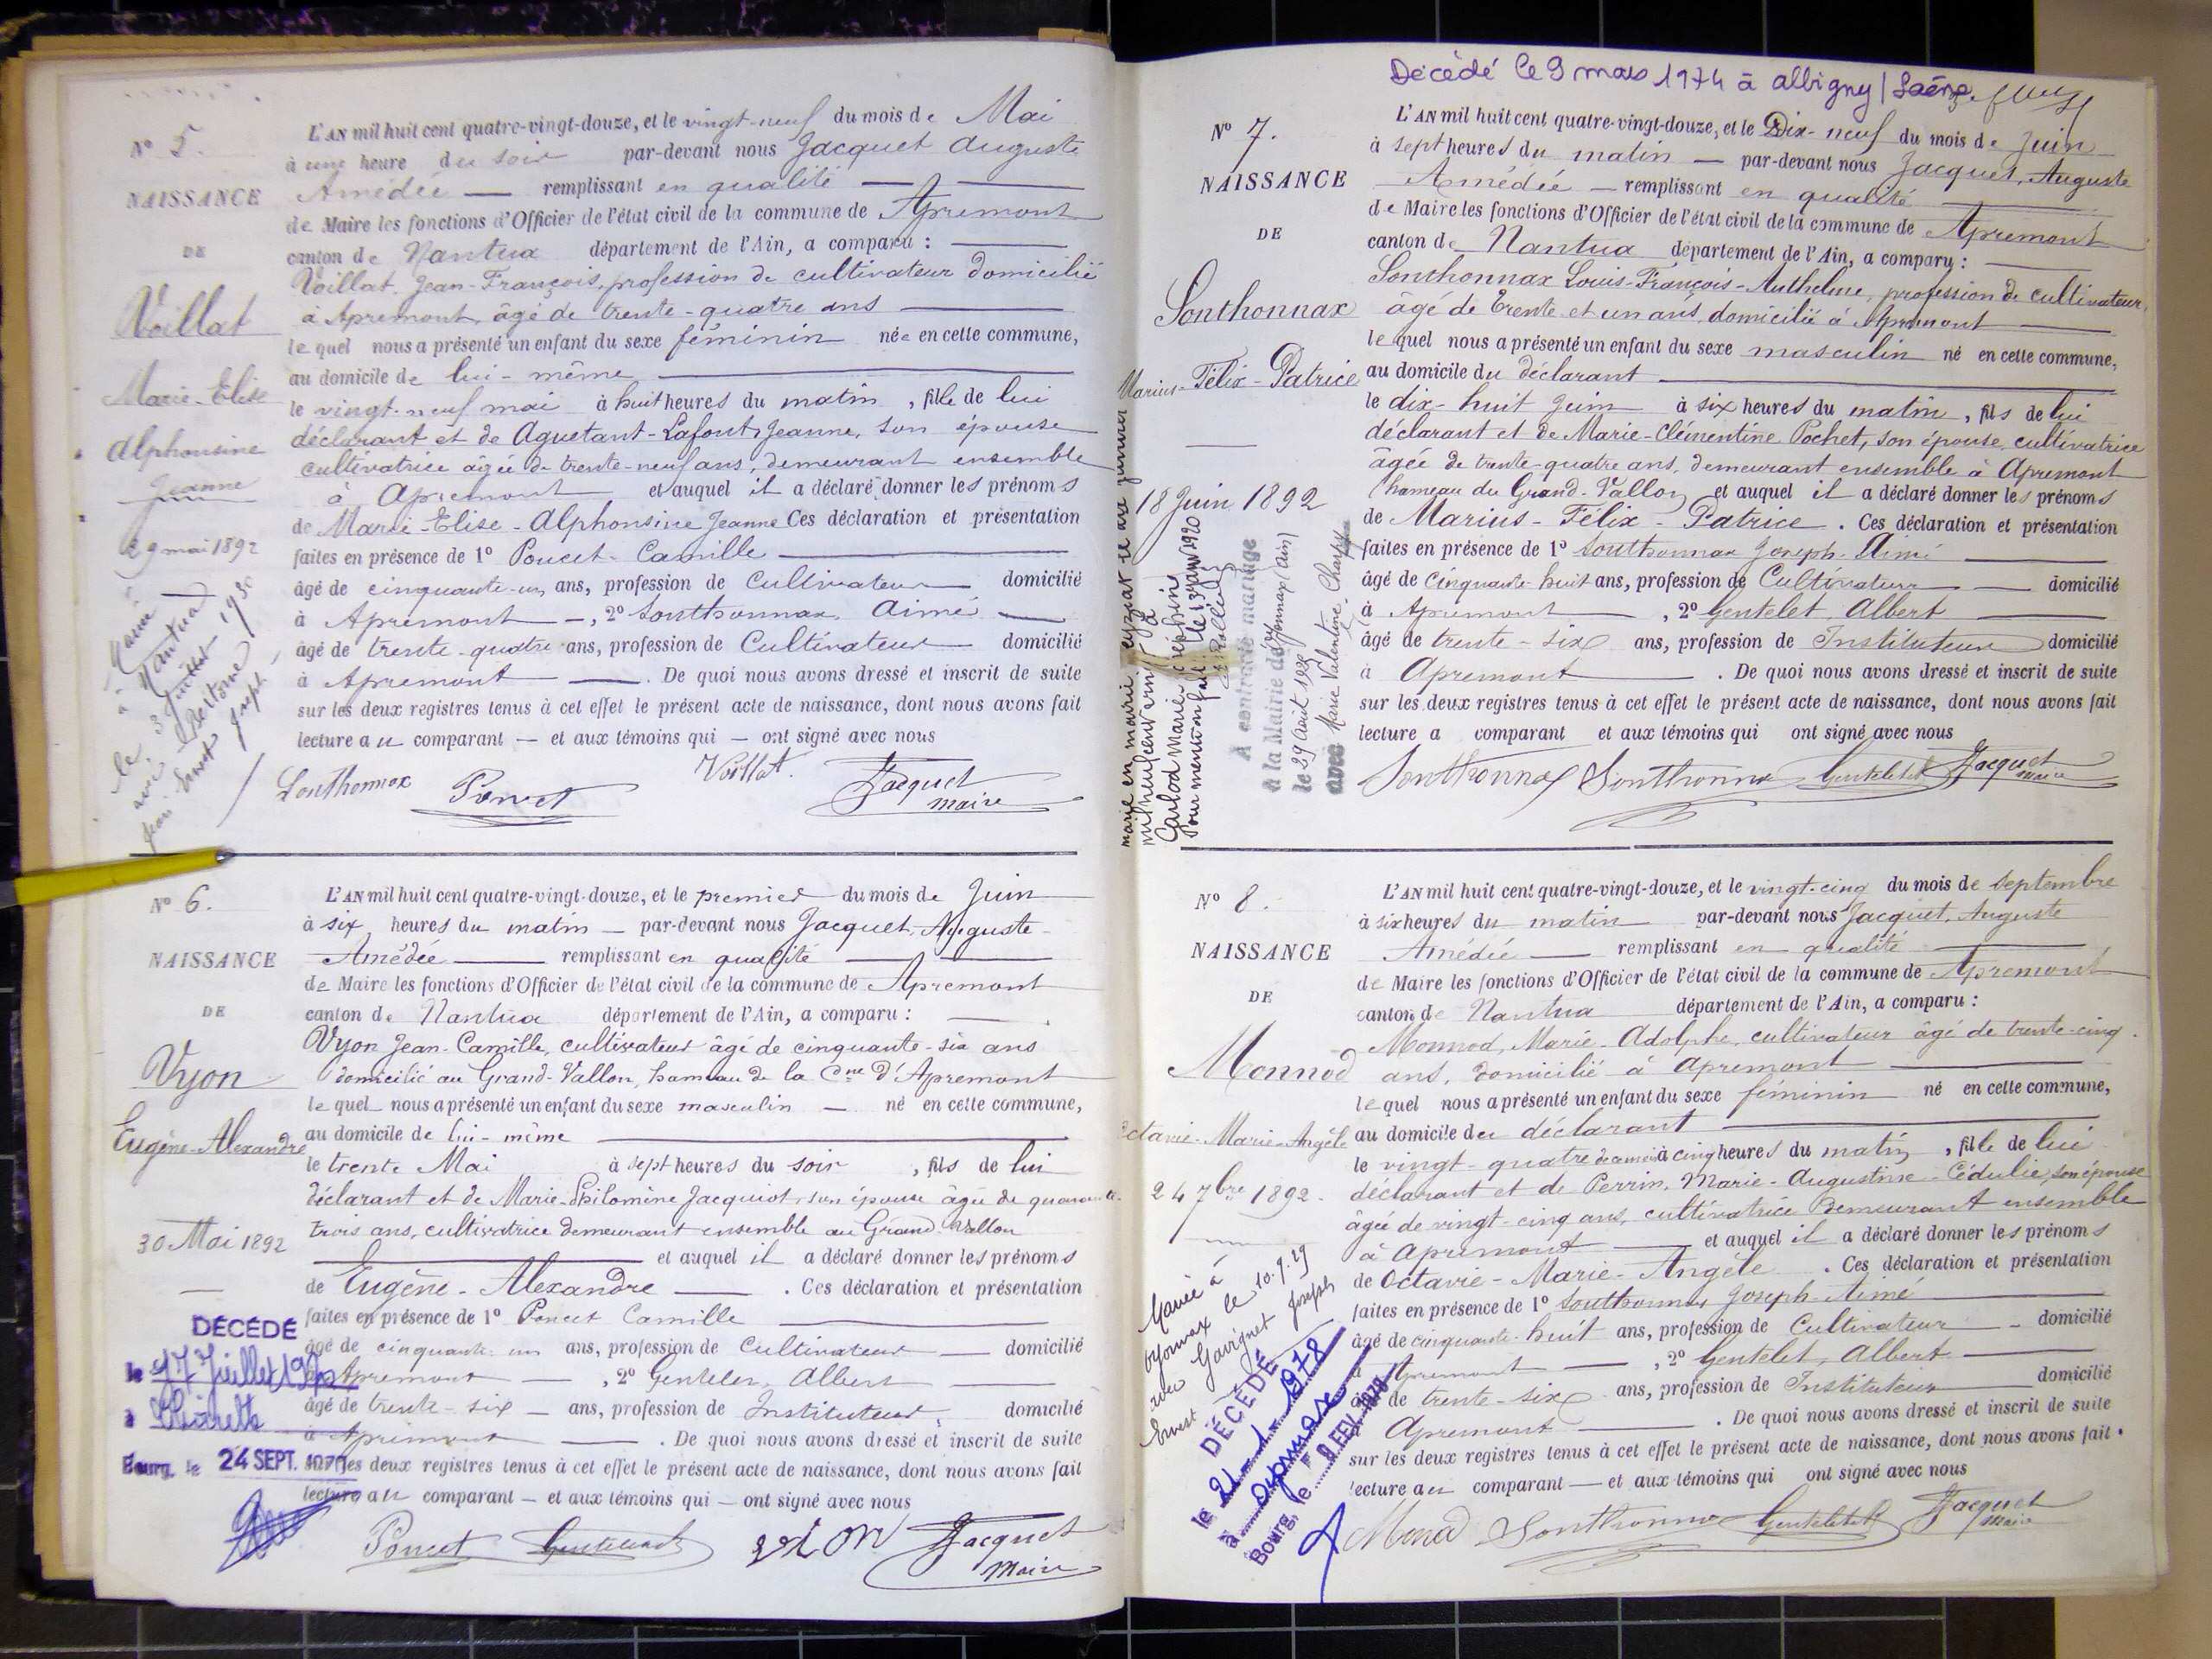 N° 5.
NAISSANCE
DE
Voillat
Marie-Elise
Alphonsine
Jeanne
29 mai 1892
L'AN mil huit cent quatre-vingt-douze, et le vingt-neuf du mois de Mai
à une heure du soir par-devant nous Jacquet Auguste
Amédée — remplissant en qualité —
de Maire les fonctions d'Officier de l'état civil de la commune de Apremont
canton de Nantua département de l'Ain, a comparu :
Voillat Jean-François, profession de cultivateur domicilié
à Apremont, âgé de trente-quatre ans
lequel nous a présenté un enfant du sexe féminin née en cette commune,
au domicile de lui-même
le vingt-neuf mai à huit heures du matin, fille de lui
déclarant et de Aguetant-Lafont, Jeanne, son épouse
cultivatrice âgée de trente-neuf ans, demeurant ensemble
à Apremont et auquel il a déclaré donner les prénoms
de Marie-Elise-Alphonsine Jeanne Ces déclaration et présentation
faites en présence de 1° Poncet Camille
âgé de cinquante-un ans, profession de Cultivateur domicilié
à Apremont —, 2° Sonthonnax Aimé —
âgé de trente-quatre ans, profession de Cultivateur domicilié
à Apremont — . De quoi nous avons dressé et inscrit de suite
sur les deux registres tenus à cet effet le présent acte de naissance, dont nous avons fait
lecture au comparant — et aux témoins qui — ont signé avec nous
Sonthonnax Poncet Voillat Jacquet
maire
N° 6.
NAISSANCE
DE
Vyon
Eugène-Alexandre
30 Mai 1892
DÉCÉDÉ
le 17 Juillet
à
Bourg, le 24 SEPT.
L'AN mil huit cent quatre-vingt-douze, et le premier du mois de Juin
à six heures du matin — par-devant nous Jacquet, Auguste-
Amédée — remplissant en qualité —
de Maire les fonctions d'Officier de l'état civil de la commune de Apremont
canton de Nantua département de l'Ain, a comparu :
Vyon Jean-Camille, cultivateur âgé de cinquante-six ans
domicilié au Grand-Vallon, hameau de la Cne d'Apremont
lequel nous a présenté un enfant du sexe masculin — né en cette commune,
au domicile de lui-même
le trente Mai à sept heures du soir, fils de lui
déclarant et de Marie-Philomène Jacquiot, son épouse âgée de quarante
trois ans, cultivatrice demeurant ensemble au Grand-Vallon
et auquel il a déclaré donner les prénoms
de Eugène-Alexandre — . Ces déclaration et présentation
faites en présence de 1° Poncet Camille
âgé de cinquante-un ans, profession de Cultivateur — domicilié
à Apremont —, 2° Gentelet, Albert
âgé de trente-six — ans, profession de Instituteur, domicilié
à Apremont — . De quoi nous avons dressé et inscrit de suite
sur les deux registres tenus à cet effet le présent acte de naissance, dont nous avons fait
lecture au comparant — et aux témoins qui — ont signé avec nous
Poncet Gentelet Vion Jacquet
Maire
Décédé le 9 mars 1974 à albigny/Saône
N° 7.
NAISSANCE
DE
Sonthonnax
Marius-Félix-Patrice
18 Juin 1892
A contracté mariage
à la Mairie de Oyonnax (Ain)
avec Marie Valentine
L'AN mil huit cent quatre-vingt-douze, et le Dix-neuf du mois de Juin
à sept heures du matin — par-devant nous Jacquet, Auguste
Amédée — remplissant en qualité
de Maire les fonctions d'Officier de l'état civil de la commune de Apremont
canton de Nantua département de l'Ain, a comparu :
Sonthonnax Louis-François-Anthelme, profession de cultivateur,
âgé de trente et un ans, domicilié à Apremont
lequel nous a présenté un enfant du sexe masculin né en cette commune,
au domicile du déclarant
le dix-huit Juin à six heures du matin, fils de lui
déclarant et de Marie-Clémentine Pochet, son épouse, cultivatrice
âgée de trente-quatre ans, demeurant ensemble à Apremont
hameau du Grand-Vallon, et auquel il a déclaré donner les prénoms
de Marius-Félix-Patrice . Ces déclaration et présentation
faites en présence de 1° Sonthonnax Joseph-Aimé
âgé de Cinquante-huit ans, profession de Cultivateur — domicilié
à Apremont, 2° Gentelet Albert
âgé de trente-six ans, profession de Instituteur domicilié
à Apremont . De quoi nous avons dressé et inscrit de suite
sur les deux registres tenus à cet effet le présent acte de naissance, dont nous avons fait
lecture a comparant et aux témoins qui ont signé avec nous
Sonthonnax Sonthonnax Gentelet Jacquet
maire
N° 8.
NAISSANCE
DE
Monnod
Octavie-Marie-Angèle
24 7bre 1892.
Mariée à
Oyonnax le 10.9.29
avec Gavignet Joseph
Ernest
DÉCÉDÉ
Bourg, le
L'AN mil huit cent quatre-vingt-douze, et le vingt-cinq du mois de septembre
à six heures du matin par-devant nous Jacquet, Auguste
Amédée — remplissant en qualité
de Maire les fonctions d'Officier de l'état civil de la commune de Apremont
canton de Nantua département de l'Ain, a comparu :
Monnod, Marie-Adolphe, cultivateur âgé de trente-cinq
ans, domicilié à Apremont
lequel nous a présenté un enfant du sexe féminin né en cette commune,
au domicile du déclarant
le vingt-quatre de ce mois à cinq heures du matin, fille de lui
déclarant et de Perrin, Marie-Augustine-Cédulie, son épouse
âgée de vingt-cinq ans, cultivatrice demeurant ensemble
à Apremont — et auquel il a déclaré donner les prénoms
de Octavie-Marie-Angèle . Ces déclaration et présentation
faites en présence de 1° Sonthonnax Joseph-Aimé
âgé de cinquante-huit ans, profession de Cultivateur - domicilié
à Apremont —, 2° Gentelet, Albert
âgé de trente-six ans, profession de Instituteur domicilié
Apremont . De quoi nous avons dressé et inscrit de suite
sur les deux registres tenus à cet effet le présent acte de naissance, dont nous avons fait
lecture au comparant — et aux témoins qui ont signé avec nous
Monod Sonthonnax Gentelet Jacquet
maire